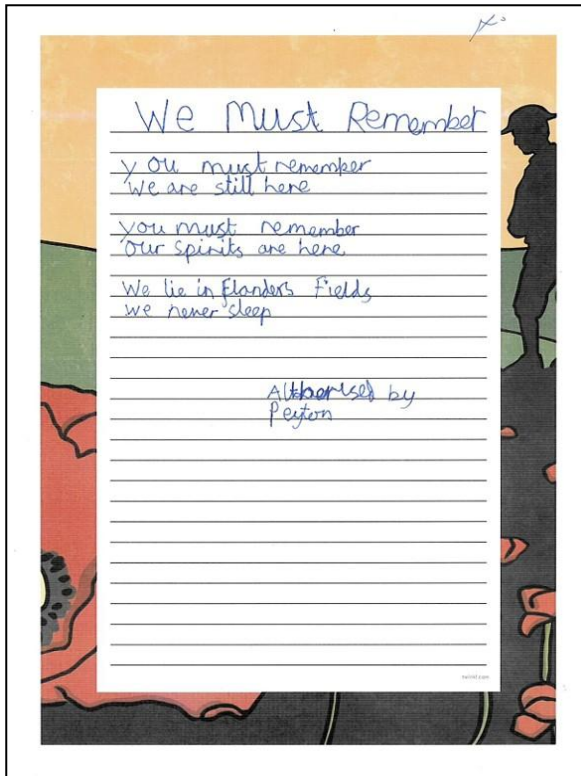 We Must Remember
you must remember
we are still here
you must remember
our spirits are here
We lie in Flanders Fields
we never sleep
Authorised by
Peyton
twinkl.com